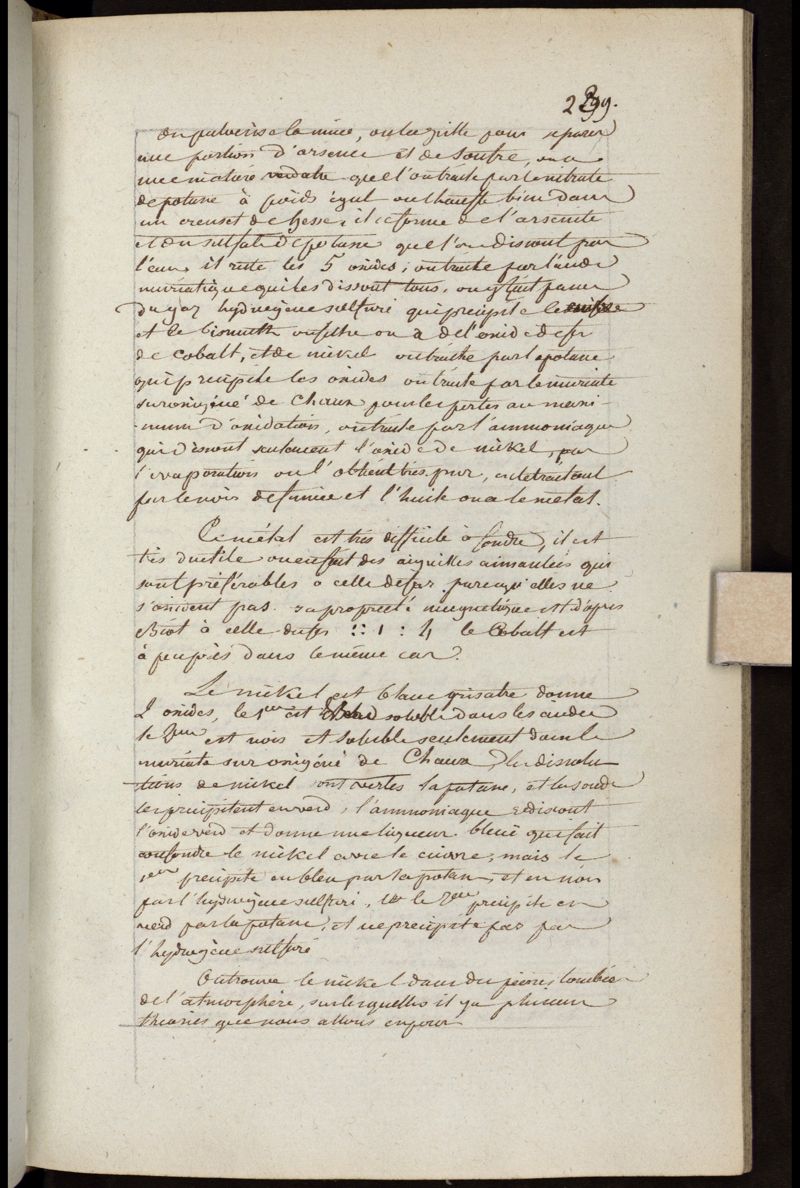 299.
on pulverise la mine, on la grille pour séparer
une portion d'arsenic et de soufre, on a
une matière verdatre que l'on traite par le nitrate
de potasse à poids égal on chauffe bien dans
un creuset de hesse, il se forme de l'arseniate
et du sulfate de potasse que l'on dissout par
l'eau, il reste les 5 oxides; on traite par l'acide
muriatique qui les dissout tous, on y fait passer
du gaz hydrogène sulfuré qui precipite le cuivre
et le bismuth on filtre on a de l'oxide de fer
de cobalt, et de nickel on traite par la potasse
qui precipite les oxides on traite par le muriate
suroxigéné de chaux pour les porter au maxi-
mum d'oxidation, on traite par l'ammoniaque
qui dissout seulement l'oxide de nickel, par
l'evaporation on l'obtient très pur, en le traitant
par le noir de fumée et l'huile on a le métal.
Ce métal est très difficile à fondre, il est
très ductile on en fait des aiguilles aimantées qui
sont préférables à celle de fer parcequ'elles ne
s'oxident pas. sa propriété magnetique est d'après
Biot à celle du fer :: 1 : 4 le Cobalt est
à peu près dans le même cas.
Le nickel est blanc grisatre donne
2 oxides, le 1er est soluble dans les acides
le 2eme est noir et soluble seulement dans le
muriate suroxigéné de Chaux les dissolu
tions de nickel sont vertes la potasse, et la soude
les precipitent en verd, l'ammoniaque redissout
l'oxide verd et donne une liqueur bleue qui fait
confondre le nickel avec le cuivre, mais le
1er precipite en bleu par la potasse, et en noir
par l'hydrogène sulfuré, le 2eme precipite en
verd par la potasse, et ne precipite pas par
l'hydrogène sulfuré
On trouve le nickel dans des pierres tombées
de l'atmosphère, sur lesquelles il y a plusieurs
théories que nous allons exposer